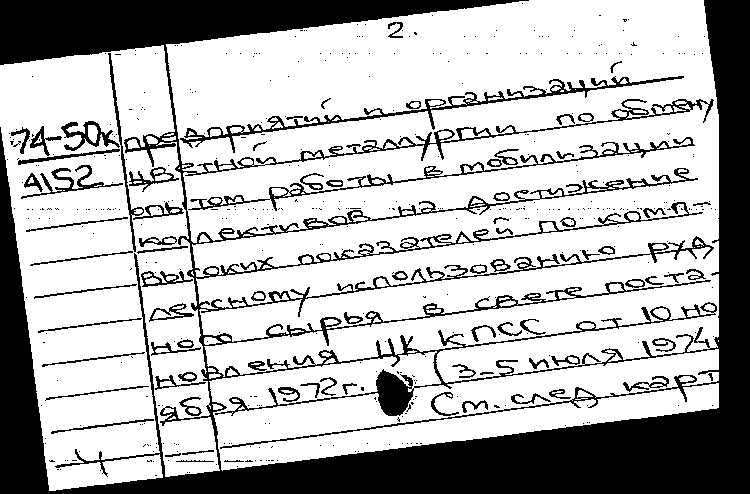 2.
74-50к предприятий и организаций
4152 цветной металлургии по обмену
опытом работы в мобилизации
коллективов на достижение
высоких показателей по комп-
лексному использованию руд-
ного сырья в свете поста-
новления ЦК КПСС от 10 но
ября 1972г. (3-5 июля 1974г
См. след. карт
Ч